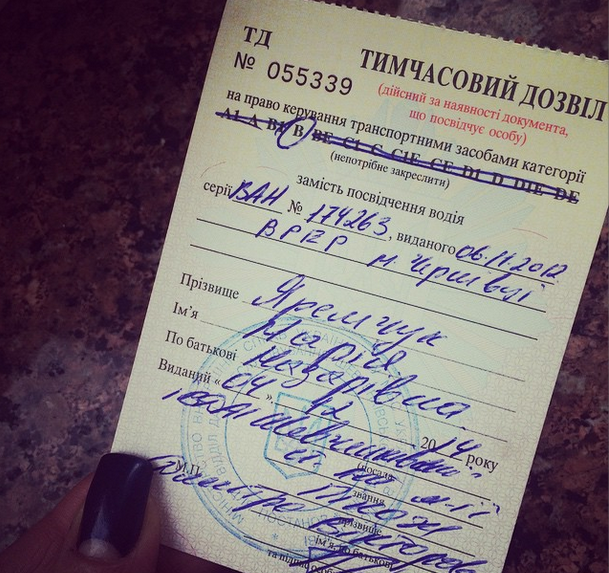 ТД
№ 055339
ТИМЧАСОВИЙ ДОЗВІЛ
(дійсний за наявності документа,
що посвідчує особу)
на право керування транспортними засобами категорії
A1 A B1 B BE C1 C C1E CE D1 D D1E DE
(непотрібне закреслити)
замість посвідчення водія
серії ВАН № 174263, виданого 06.11.2012
ВРЕР м. Чернівці
Прізвище Яремчук
Ім’я Марія
По батькові Назарівна
Виданий «04» 12 2014 року
(посада,
звання
М.П.
прізвище
ім’я, по батькові
та підпис